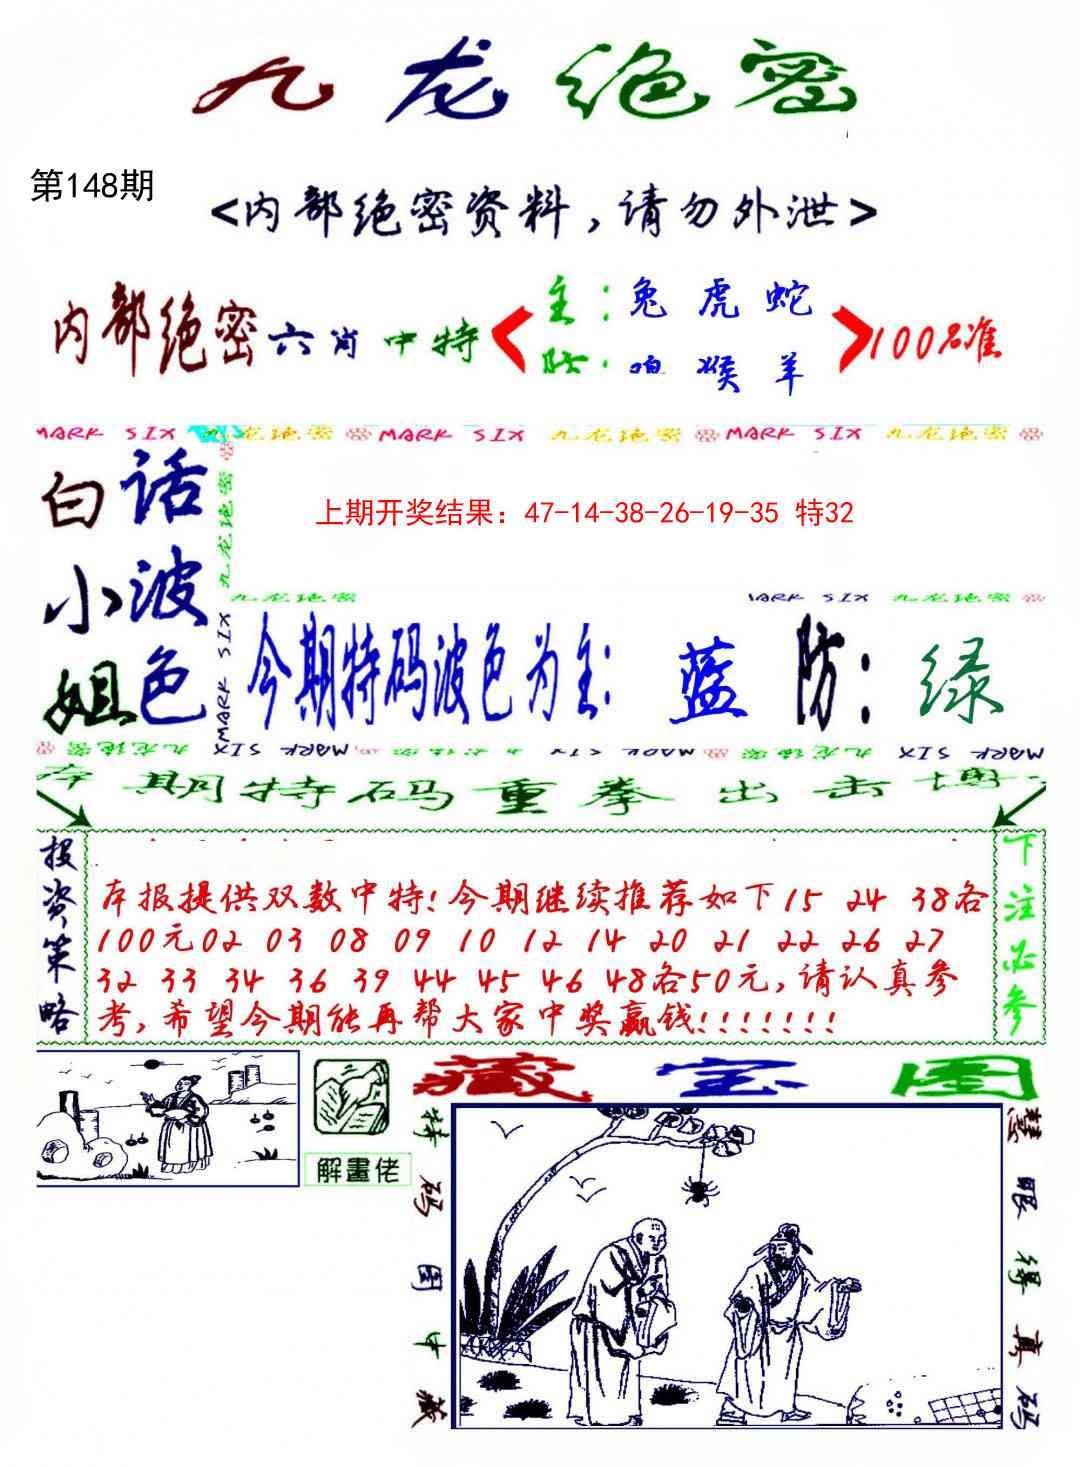 九龙绝密
第148期
<内部绝密资料,请勿外泄>
内部绝密六肖中特
主:兔 虎 蛇
防:
猴 羊
100%准
MARK SIX 九龙绝密 MARK SIX 九龙绝密 MARK SIX 九龙绝密
白话
小波
姐色
九龙绝密
MARK SIX
上期开奖结果：47-14-38-26-19-35 特32
九龙绝密
MARK SIX 九龙绝密
今期特码波色为主: 蓝 防: 绿
九龙绝密 MARK SIX 九龙绝密 MARK SIX 九龙绝密 MARK SIX
本期特码重拳出击博
投资策略
本报提供双数中特!今期继续推荐如下15 24 38各
100元02 03 08 09 10 12 14 20 21 22 26 27
32 33 34 36 39 44 45 46 48各50元,请认真参
考,希望今期能再帮大家中奖赢钱!!!!!!!
下注必参
解畫佬
藏宝图
特码图中藏
慧眼得真码